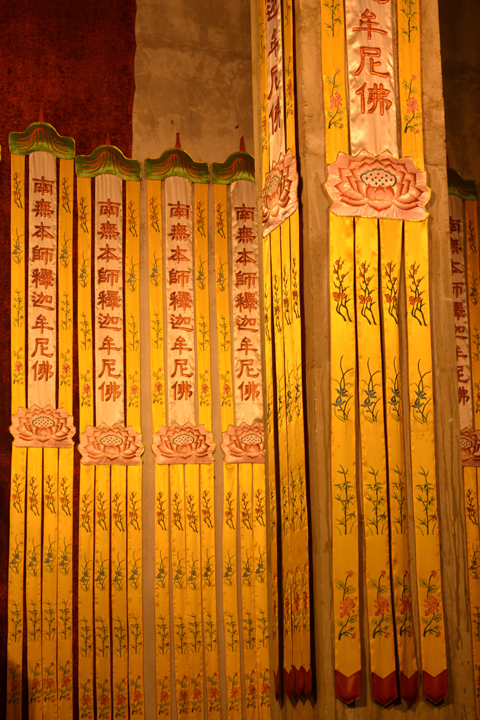 南無本師釋迦牟尼佛
南無本師釋迦牟尼佛
南無本師釋迦牟尼佛
南無本師釋迦牟尼佛
牟尼佛
牟尼佛